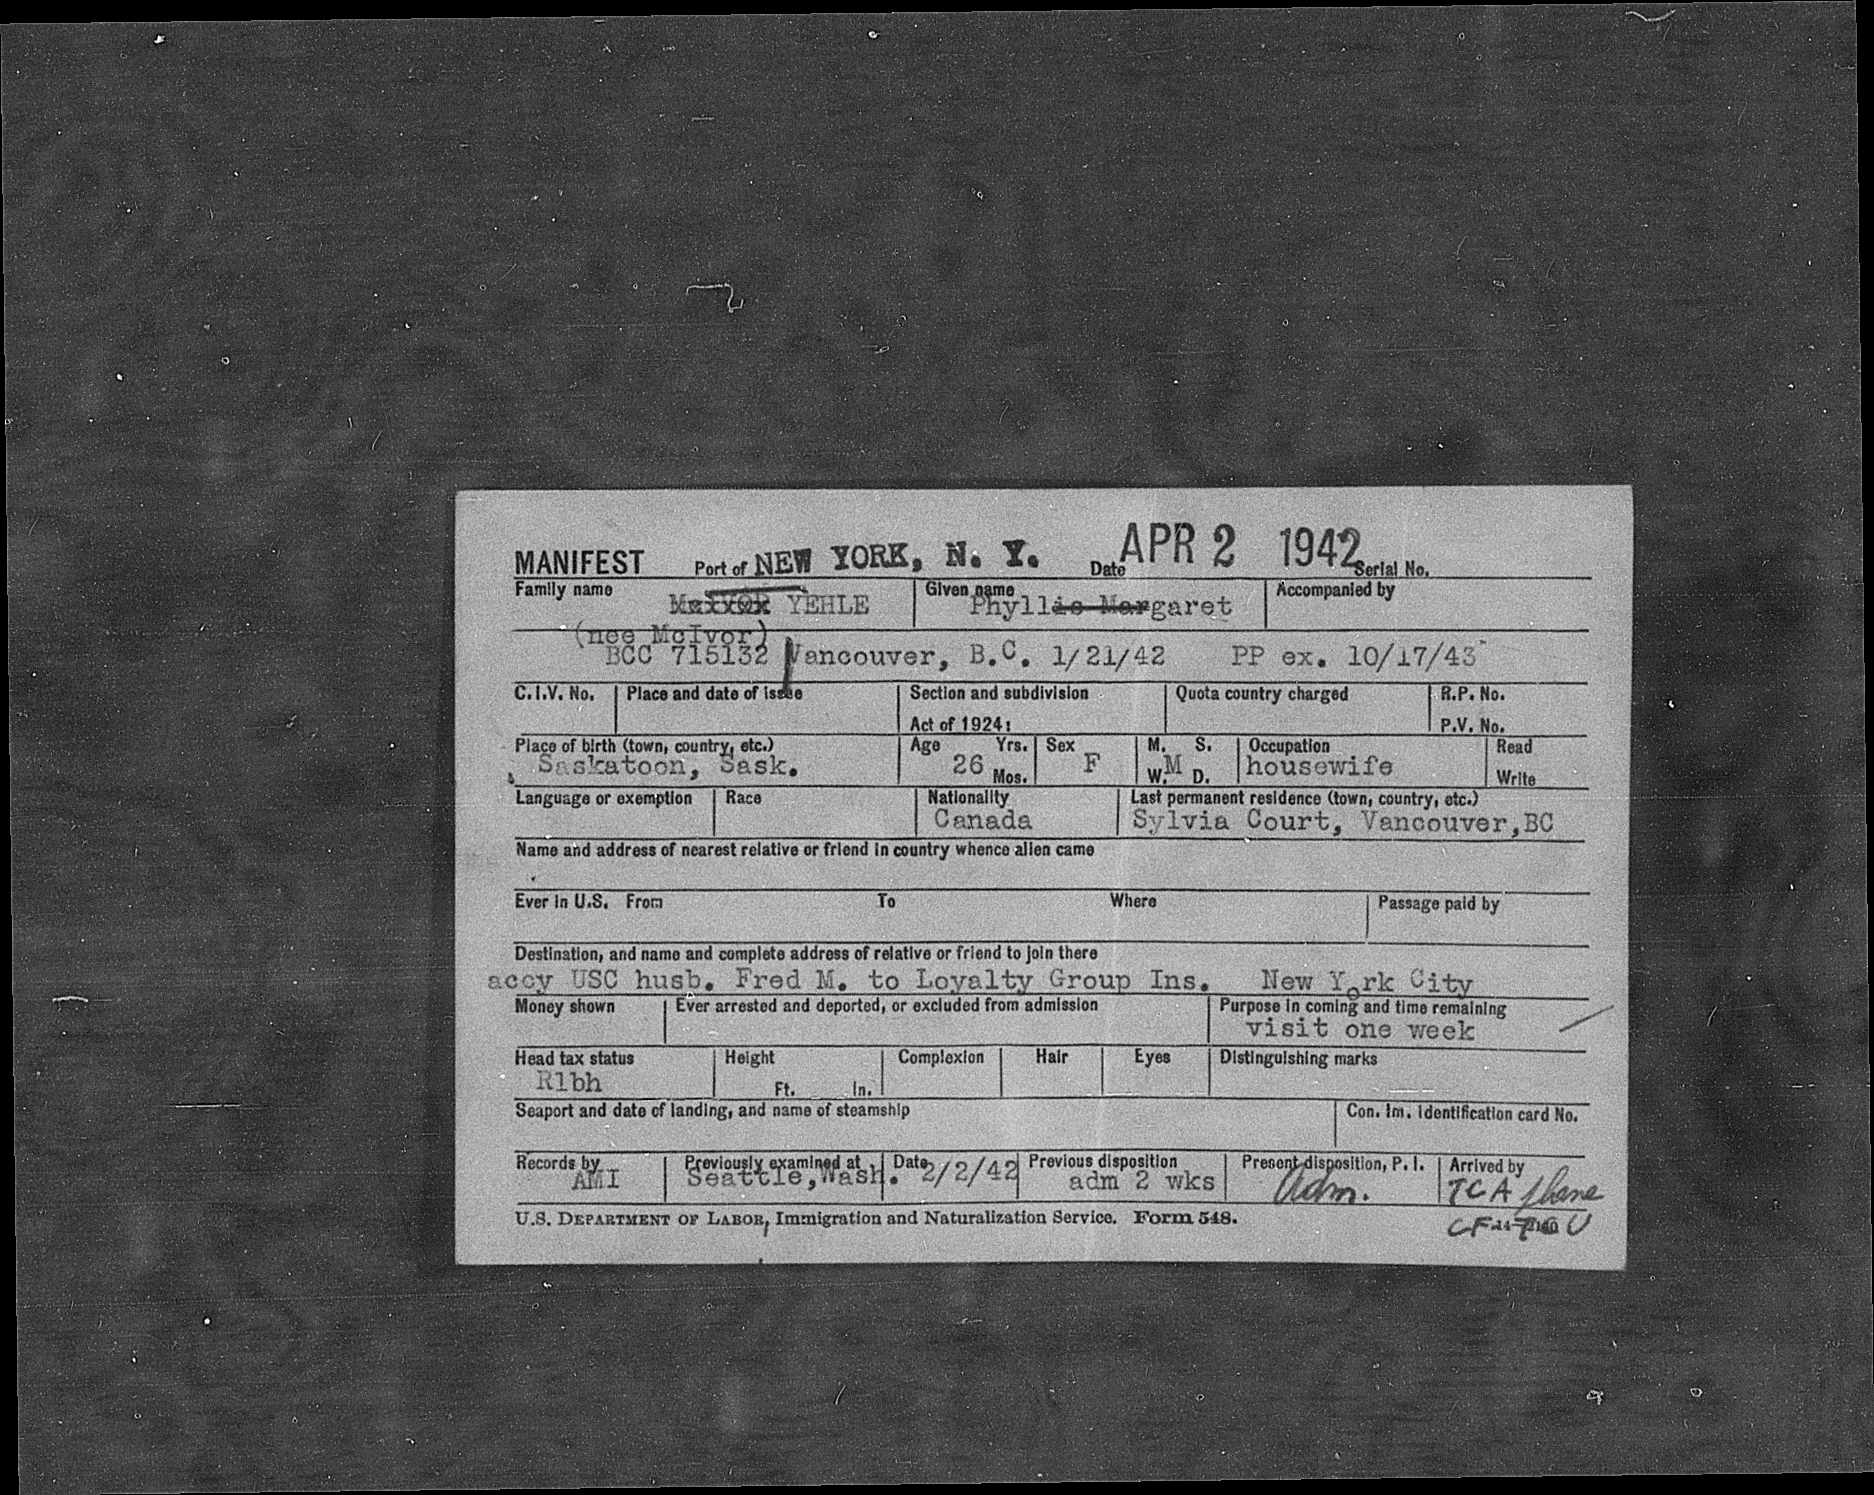 MANIFEST Port of NEW YORK, N. Y. Date APR 2 1942 Serial No.
Family name Given name Accompanied by
YEHLE Phyllis Margaret
(nee McIvor)
BCC 715132 Vancouver, B.C. 1/21/42 PP ex. 10/17/43
C.I.V. No. Place and date of issue Section and subdivision Quota country charged R.P. No.
Act of 1924: P.V. No.
Place of birth (town, country, etc.) Age Yrs. Sex M. S. Occupation Read
Saskatoon, Sask. 26 Mos. F W. M D. housewife Write
Language or exemption Race Nationality Last permanent residence (town, country, etc.)
Canada Sylvia Court, Vancouver,BC
Name and address of nearest relative or friend in country whence alien came
Ever in U.S. From To Where Passage paid by
Destination, and name and complete address of relative or friend to join there
accy USC husb. Fred M. to Loyalty Group Ins. New York City
Money shown Ever arrested and deported, or excluded from admission Purpose in coming and time remaining
visit one week
Head tax status Height Complexion Hair Eyes Distinguishing marks
R1bh Ft. In.
Seaport and date of landing, and name of steamship Con. Im. Identification card No.
Records by Previously examined at Date Previous disposition Present disposition, P. I. Arrived by
AMI Seattle,Wash. 2/2/42 adm 2 wks Adm. TCA plane
U.S. DEPARTMENT OF LABOR, Immigration and Naturalization Service. Form 548. CF